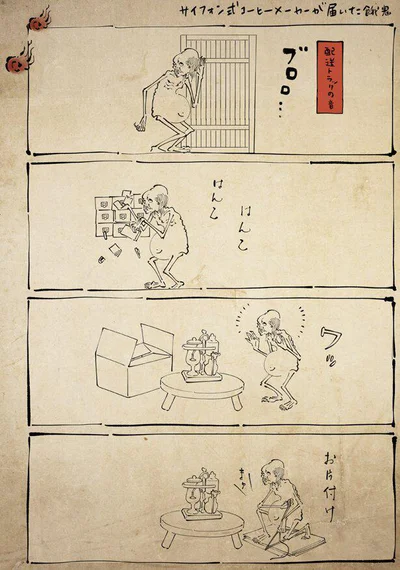 サイフォン式コーヒーメーカーが届いた餓鬼
配送トラックの音
ブロロ…
はんこ
はんこ
ワッ
お片付け